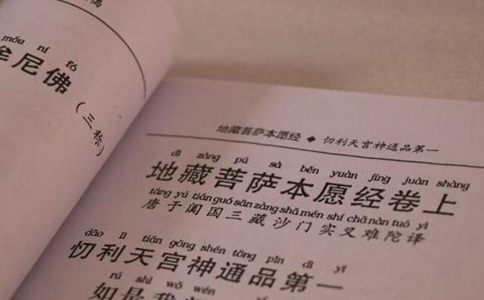 móu ní fó
牟尼佛
(三称)
地藏菩萨本愿经 ◆ 忉利天宫神通品第一
dì zàng pú sà běn yuàn jīng juàn shàng
地藏菩萨本愿经卷上
táng yú tián guó sān zàng shā mén shí chā nán tuó yì
唐于阗国三藏沙门实叉难陀译
dāo lì tiān gōng shén tōng pǐn dì yī
忉利天宫神通品第一
rú shì wǒ wén
如是我